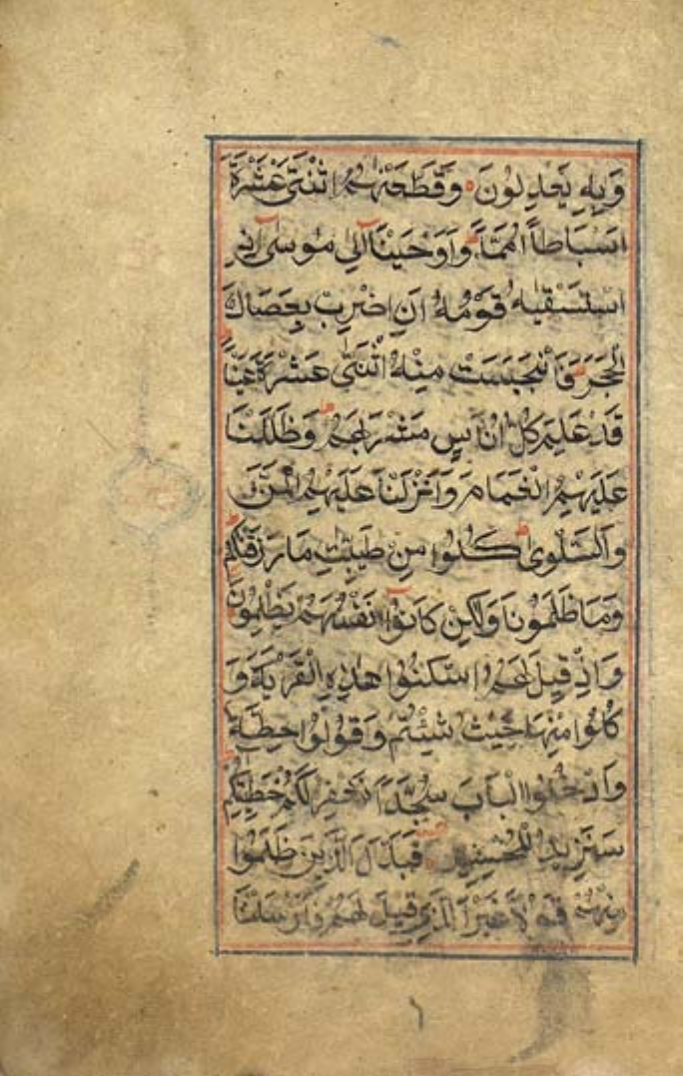 وَبِهٖ يَعْدِلُوْنَ ۝ وَقَطَّعْنٰهُمُ اثْنَتَىْ عَشْرَةَ
اَسْبَاطًا اُمَمًا ؕ وَاَوْحَيْنَاۤ اِلٰى مُوْسٰۤى اِذِ
اسْتَسْقٰىهُ قَوْمُهٗۤ اَنِ اضْرِبْ بِّعَصَاكَ
الْحَجَرَ ۚ فَانْۢبَجَسَتْ مِنْهُ اثْنَتَىْ عَشْرَةَ عَيْنًا ؕ
قَدْ عَلِمَ كُلُّ اُنَاسٍ مَّشْرَبَهُمْ ؕ وَظَلَّلْنَا
عَلَيْهِمُ الْغَمَامَ وَاَنْزَلْنَا عَلَيْهِمُ الْمَنَّ
وَالسَّلْوٰى ؕ كُلُوْا مِنْ طَيِّبٰتِ مَا رَزَقْنٰكُمْ ؕ
وَمَا ظَلَمُوْنَا وَلٰكِنْ كَانُوْۤا اَنْفُسَهُمْ يَظْلِمُوْنَ
وَاِذْ قِيْلَ لَهُمُ اسْكُنُوْا هٰذِهِ الْقَرْيَةَ وَ
كُلُوْا مِنْهَا حَيْثُ شِئْتُمْ وَقُوْلُوْا حِطَّةٌ
وَّادْخُلُوا الْبَابَ سُجَّدًا نَّغْفِرْ لَكُمْ خَطِيْٓئٰتِكُمْ ؕ
سَنَزِيْدُ الْمُحْسِنِيْنَ ۝ فَبَدَّلَ الَّذِيْنَ ظَلَمُوْا
مِنْهُمْ قَوْلًا غَيْرَ الَّذِىْ قِيْلَ لَهُمْ فَاَرْسَلْنَا